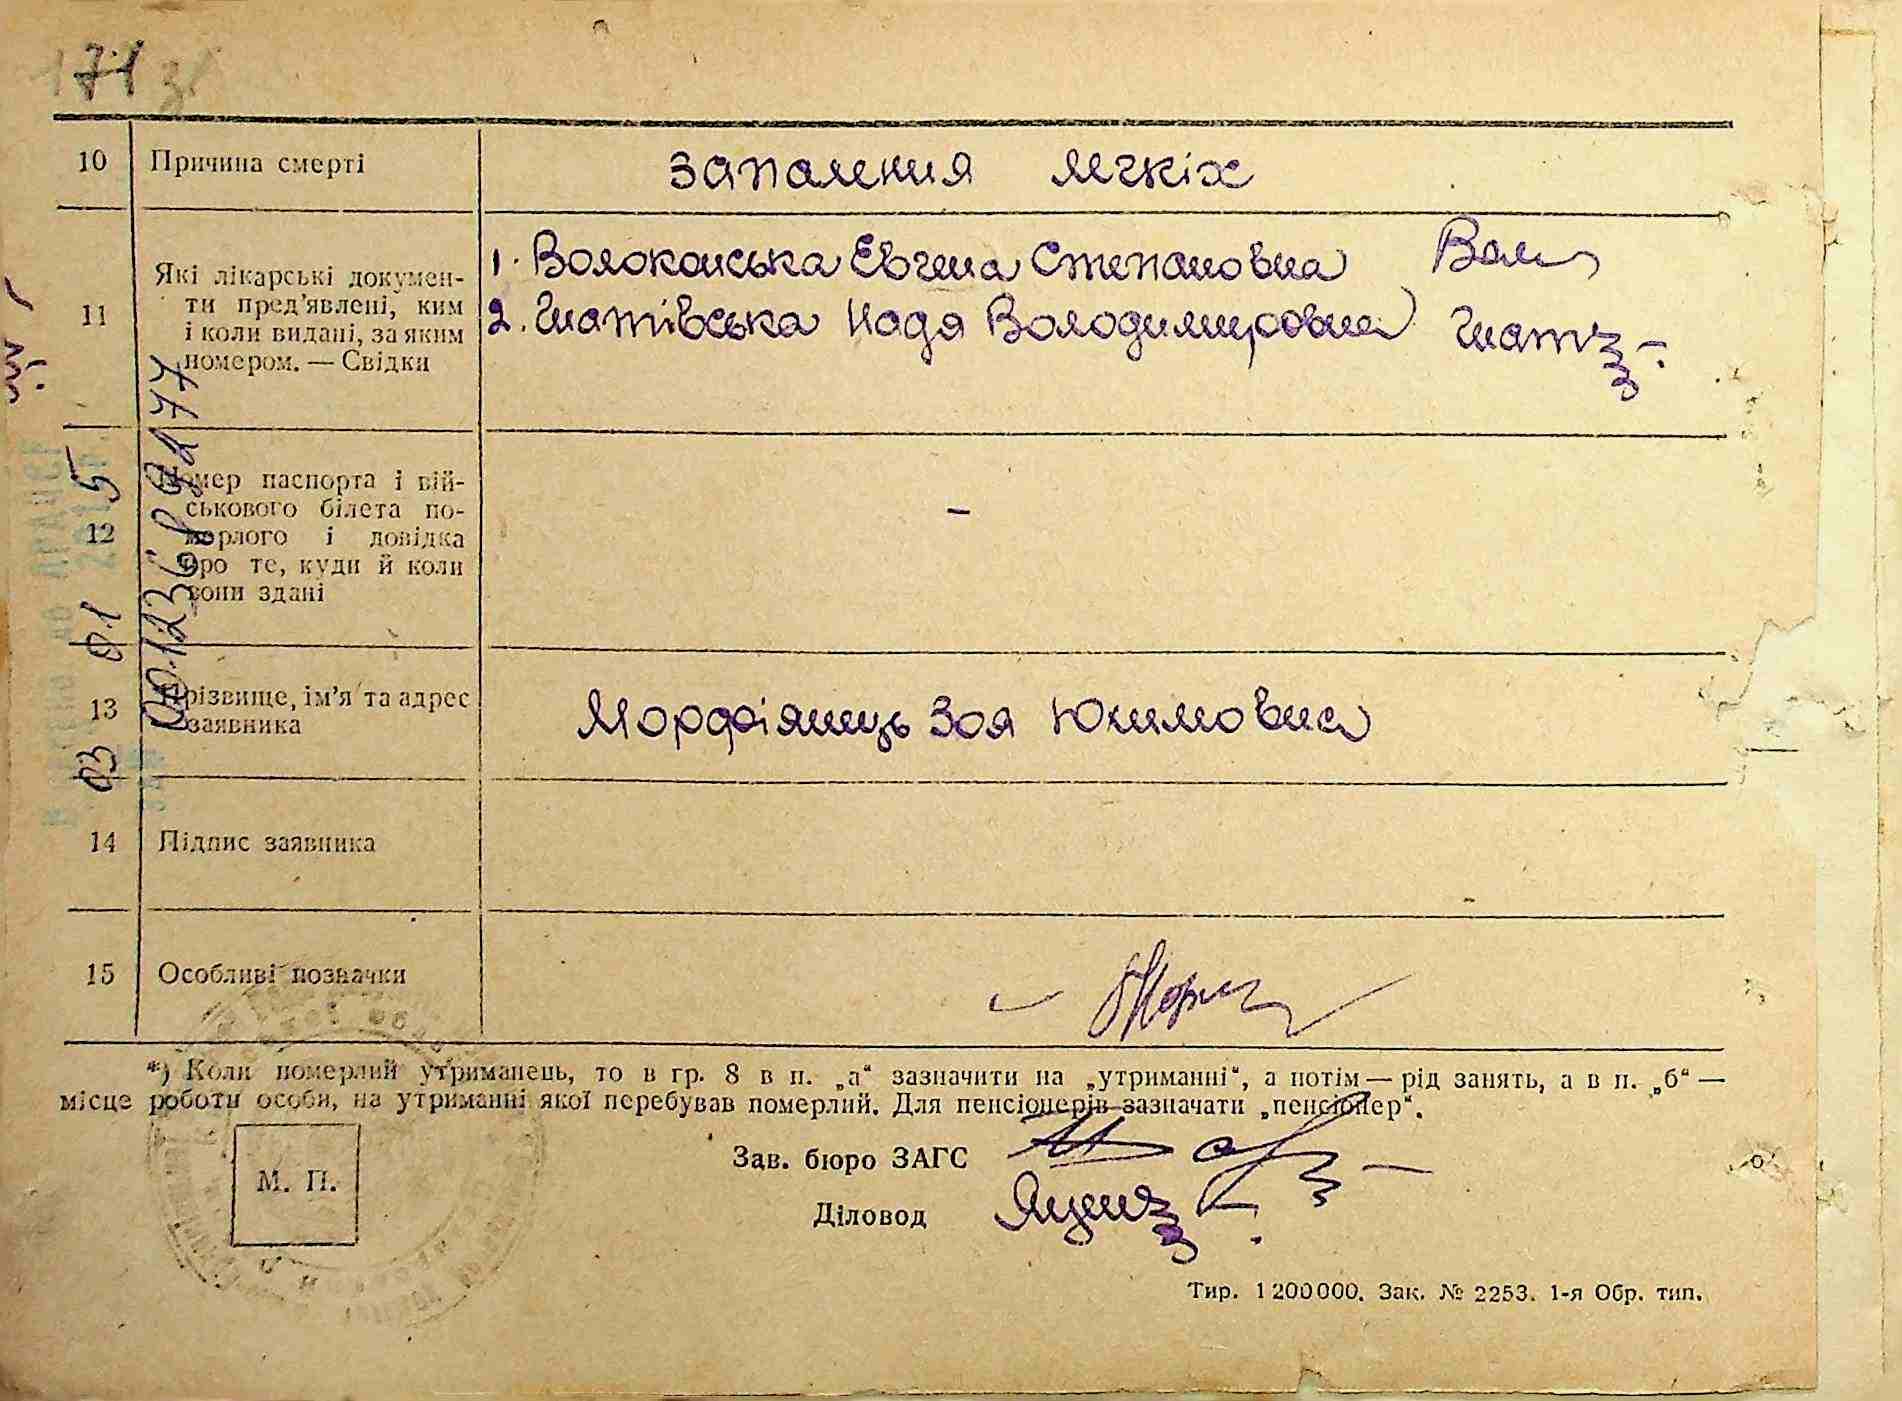 171
10 Причина смерті запалення легкіх
11 Які лікарські докумен-
ти пред'явлені, ким
і коли видані, за яким
номером. — Свідки
1. Волоконська Евгена Степановна Вол
2. Гнатівська Надя Володимировна Гнат
12 Номер паспорта і вій-
ськового білета по-
мерлого і довідка
про те, куди й коли
вони здані
-
13 Прізвище, ім'я та адрес
заявника
Морфіянець Зоя Юхимовна
14 Підпис заявника
15 Особливі позначки
*) Коли померлий утриманець, то в гр. 8 в п. „а“ зазначити на „утриманні“, а потім — рід занять, а в п. „б“ —
місце роботи особи, на утриманні якої перебував померлий. Для пенсіонерів зазначати „пенсіонер“.
Зав. бюро ЗАГС
М. П.
Діловод
Тир. 1200000. Зак. № 2253. 1-я Обр. тип.